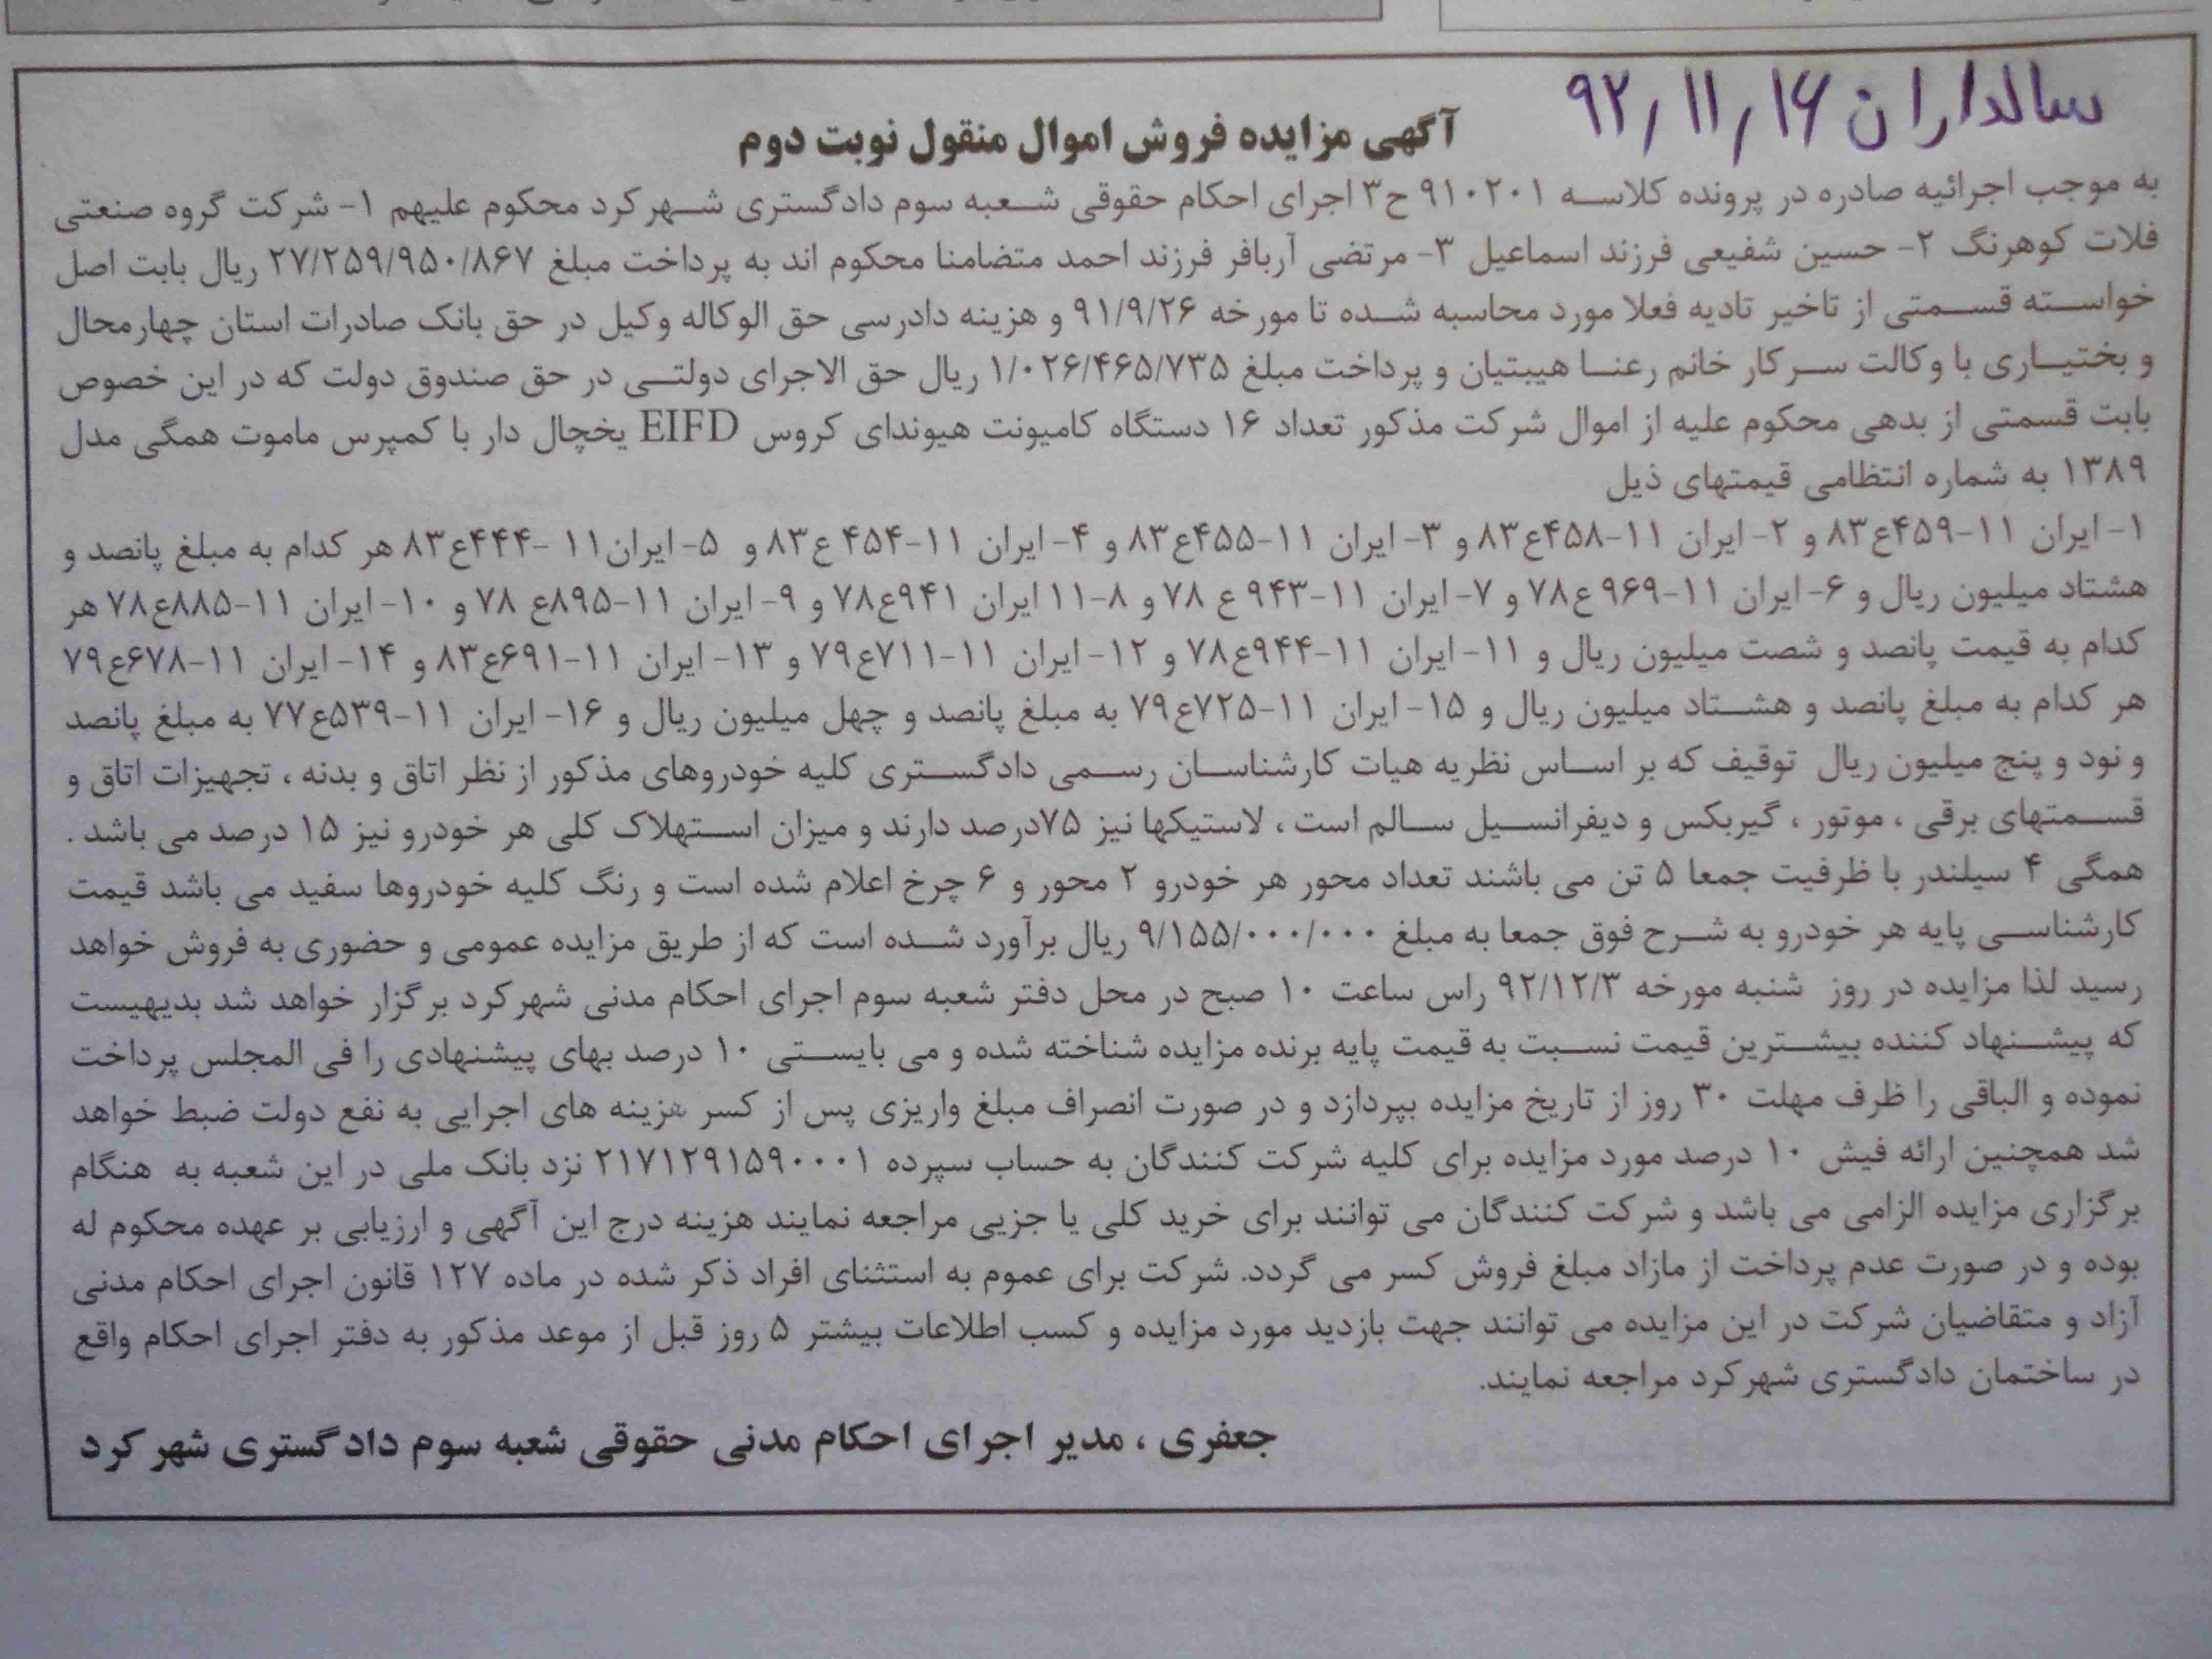 سالداران ۹۲٫۱۱٫۱۶
آگهی مزایده فروش اموال منقول نوبت دوم
به موجب اجرائیه صادره در پرونده کلاسه ۹۱۰۲۰۱ ح۳ اجرای احکام حقوقی شعبه سوم دادگستری شهرکرد محکوم علیهم ۱- شرکت گروه صنعتی
فلات کوهرنگ ۲- حسین شفیعی فرزند اسماعیل ۳- مرتضی آربافر فرزند احمد متضامنا محکوم اند به پرداخت مبلغ ۲۷/۲۵۹/۹۵۰/۸۶۷ ریال بابت اصل
خواسته قسمتی از تاخیر تادیه فعلا مورد محاسبه شده تا مورخه ۹۱/۹/۲۶ و هزینه دادرسی حق الوکاله وکیل در حق بانک صادرات استان چهارمحال
و بختیاری با وکالت سرکار خانم رعنا هیبتیان و پرداخت مبلغ ۱/۰۲۶/۴۶۵/۷۳۵ ریال حق الاجرای دولتی در حق صندوق دولت که در این خصوص
بابت قسمتی از بدهی محکوم علیه از اموال شرکت مذکور تعداد ۱۶ دستگاه کامیونت هیوندای کروس EIFD یخچال دار با کمپرس ماموت همگی مدل
۱۳۸۹ به شماره انتظامی قیمتهای ذیل
۱- ایران ۱۱-۴۵۹ع۸۳ و ۲- ایران ۱۱-۴۵۸ع۸۳ و ۳- ایران ۱۱-۴۵۵ع۸۳ و ۴- ایران ۱۱-۴۵۴ ع۸۳ و ۵- ایران۱۱ -۴۴۴ع۸۳ هر کدام به مبلغ پانصد و
هشتاد میلیون ریال و ۶- ایران ۱۱-۹۶۹ ع۷۸ و ۷- ایران ۱۱-۹۴۳ ع ۷۸ و ۸-۱۱ ایران ۹۴۱ع۷۸ و ۹- ایران ۱۱-۸۹۵ع ۷۸ و ۱۰- ایران ۱۱-۸۸۵ع۷۸ هر
کدام به قیمت پانصد و شصت میلیون ریال و ۱۱- ایران ۱۱-۹۴۴ع۷۸ و ۱۲- ایران ۱۱-۷۱۱ع۷۹ و ۱۳- ایران ۱۱-۶۹۱ع۸۳ و ۱۴- ایران ۱۱-۶۷۸ع۷۹
هر کدام به مبلغ پانصد و هشتاد میلیون ریال و ۱۵- ایران ۱۱-۷۲۵ع۷۹ به مبلغ پانصد و چهل میلیون ریال و ۱۶- ایران ۱۱-۵۳۹ع۷۷ به مبلغ پانصد
و نود و پنج میلیون ریال توقیف که بر اساس نظریه هیات کارشناسان رسمی دادگستری کلیه خودروهای مذکور از نظر اتاق و بدنه ، تجهیزات اتاق و
قسمتهای برقی ، موتور ، گیربکس و دیفرانسیل سالم است ، لاستیکها نیز ۷۵درصد دارند و میزان استهلاک کلی هر خودرو نیز ۱۵ درصد می باشد .
همگی ۴ سیلندر با ظرفیت جمعا ۵ تن می باشند تعداد محور هر خودرو ۲ محور و ۶ چرخ اعلام شده است و رنگ کلیه خودروها سفید می باشد قیمت
کارشناسی پایه هر خودرو به شرح فوق جمعا به مبلغ ۹/۱۵۵/۰۰۰/۰۰۰ ریال برآورد شده است که از طریق مزایده عمومی و حضوری به فروش خواهد
رسید لذا مزایده در روز شنبه مورخه ۹۲/۱۲/۳ راس ساعت ۱۰ صبح در محل دفتر شعبه سوم اجرای احکام مدنی شهرکرد برگزار خواهد شد بدیهیست
که پیشنهاد کننده بیشترین قیمت نسبت به قیمت پایه برنده مزایده شناخته شده و می بایستی ۱۰ درصد بهای پیشنهادی را فی المجلس پرداخت
نموده و الباقی را ظرف مهلت ۳۰ روز از تاریخ مزایده بپردازد و در صورت انصراف مبلغ واریزی پس از کسر هزینه های اجرایی به نفع دولت ضبط خواهد
شد همچنین ارائه فیش ۱۰ درصد مورد مزایده برای کلیه شرکت کنندگان به حساب سپرده ۲۱۷۱۲۹۱۵۹۰۰۰۱ نزد بانک ملی در این شعبه به هنگام
برگزاری مزایده الزامی می باشد و شرکت کنندگان می توانند برای خرید کلی یا جزیی مراجعه نمایند هزینه درج این آگهی و ارزیابی بر عهده محکوم له
بوده و در صورت عدم پرداخت از مازاد مبلغ فروش کسر می گردد. شرکت برای عموم به استثنای افراد ذکر شده در ماده ۱۲۷ قانون اجرای احکام مدنی
آزاد و متقاضیان شرکت در این مزایده می توانند جهت بازدید مورد مزایده و کسب اطلاعات بیشتر ۵ روز قبل از موعد مذکور به دفتر اجرای احکام واقع
در ساختمان دادگستری شهرکرد مراجعه نمایند.
جعفری ، مدیر اجرای احکام مدنی حقوقی شعبه سوم دادگستری شهرکرد